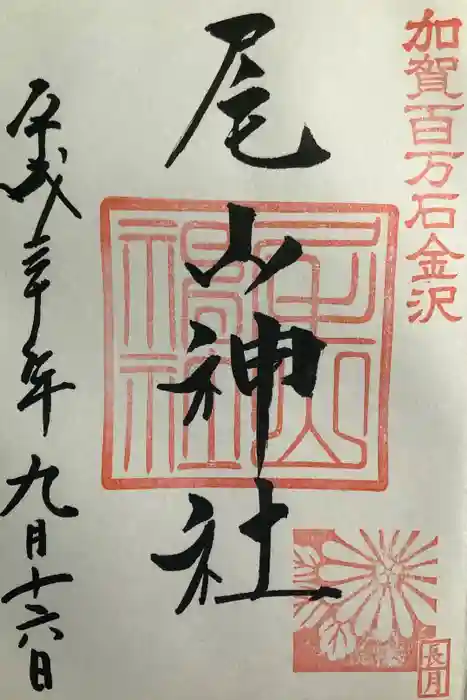 加賀百万石金沢
尾山神社
尾山
神社
平成三十年九月十六日
長月